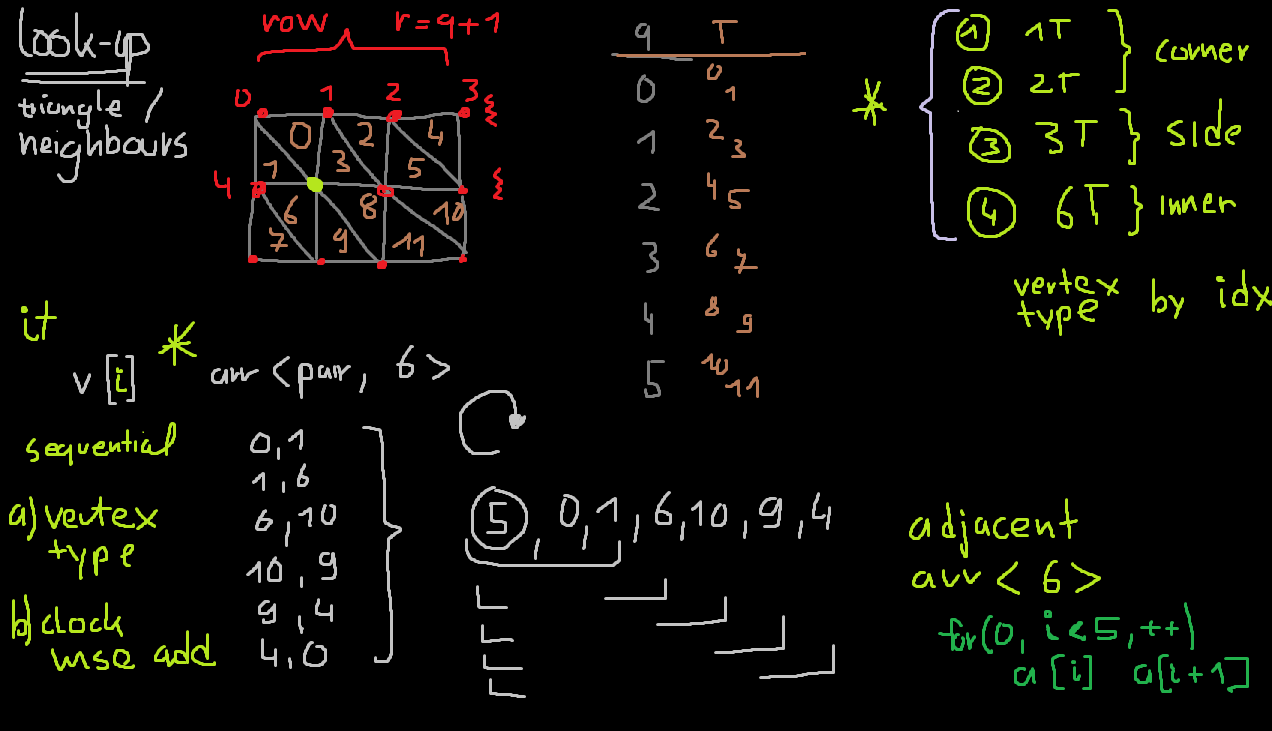 look-up
triangle /
neighbours
row r = q+1
0 1 2 3
0 2 4
1 3 5
4
6 8 10
7 9 11
q T
0 0 1
1 2 3
2 4 5
3 6 7
4 8 9
5 10 11
* ① 1T
② 2T
corner
③ 3T } side
④ 6T } inner
vertex
type by idx
it
v [i] * arr <pair, 6>
sequential
a) vertex
type
b) clock
wise add
0,1
1,6
6,10
10,9
9,4
4,0
⑤, 0,1, 6,10, 9,4
adjacent
arr < 6 >
for(0, i<5, ++)
a [i] a[i+1]